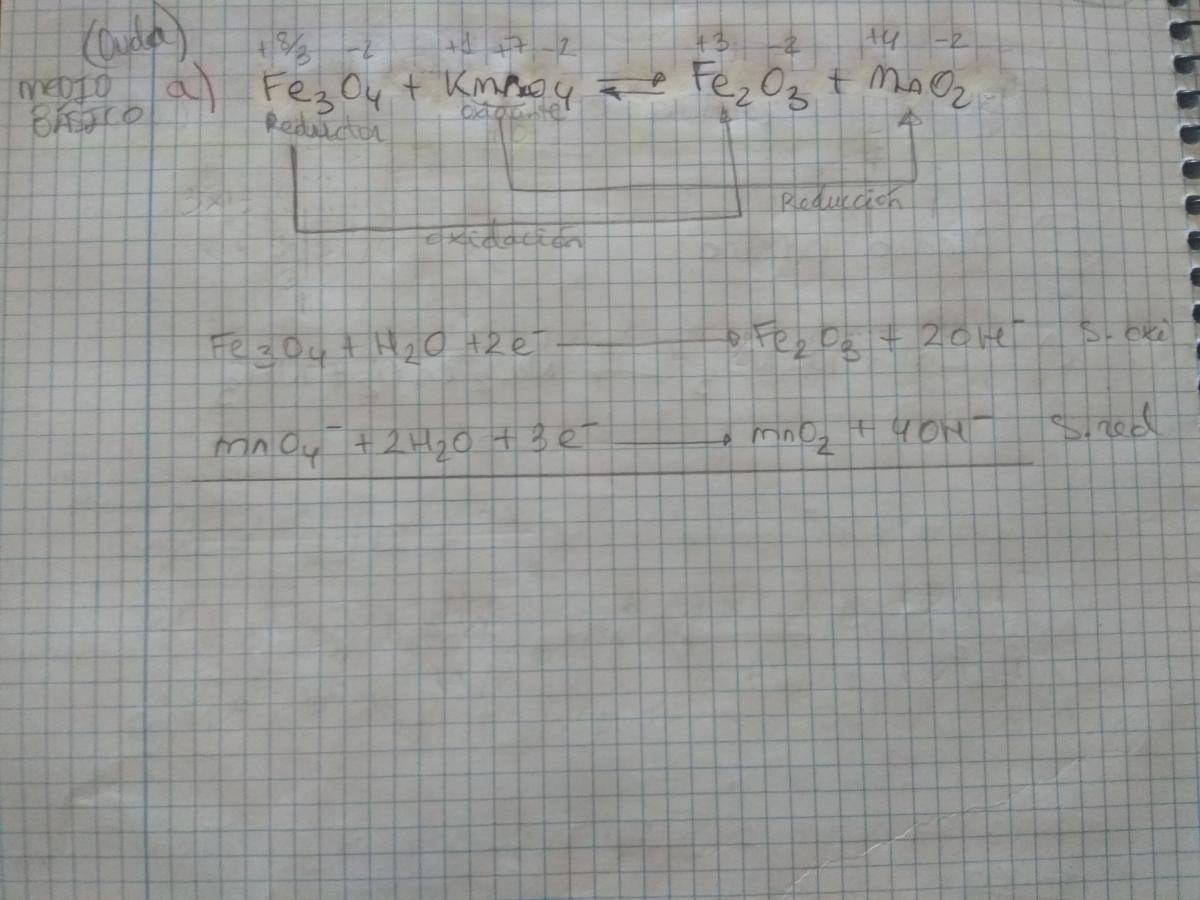 (Duda)
+8/3 -2 +1 +7 -2 +3 -2 +4 -2
MEDIO BÁSICO a) Fe₃O₄ + KmnO₄ ⇌ Fe₂O₃ + MnO₂
Reductor oxidante
Reducción
oxidación
Fe₃O₄ + H₂O + 2e⁻ → Fe₂O₃ + 2OH⁻ S. oxi
mnO₄⁻ + 2H₂O + 3e⁻ → mnO₂ + 4OH⁻ S. red